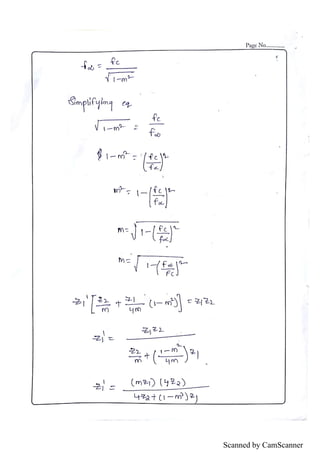 Page No..........
f∞ = fc / √(1-m²)
Simplifying eq
√(1-m²) = fc / f∞
1-m² = (fc / f∝)²
m² = 1-(fc / f∝)²
m = √(1-(fc / f∝)²)
m = √(1-(f∞ / fc)²)
Z1' [Z2 / m + Z1 / 4m (1-m²)] = Z1Z2
Z1' = Z1Z2 / (Z2 / m + ((1-m²) / 4m) Z1)
Z1' = (mZ1) (4Z2) / (4Z2 + (1-m²) Z1)
Scanned by CamScanner